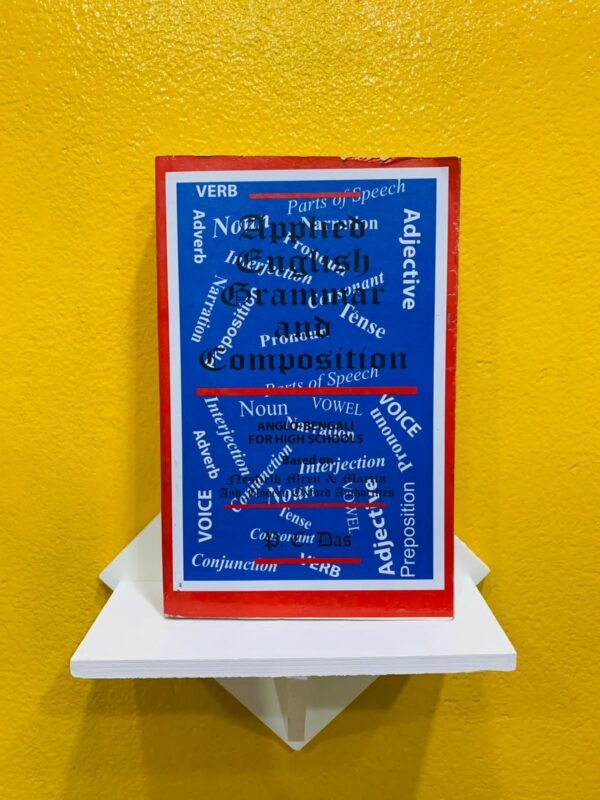 VERB
Parts of Speech
Adverb
Noun
Narration
Adjective
Applied
Pronoun
English
Interjection
Grammar
Consonant
Narration
Preposition
Tense
and
Pronoun
Composition
Parts of Speech
Noun
VOWEL
VOICE
Interjection
ANGLO-BENGALI
Narration
FOR HIGH SCHOOLS
Pronoun
Adverb
Based on
Conjunction
Interjection
Nesfield Wren & Martin
Noun
And Modern Oxford Authorities
VOWEL
VOICE
Adjective
Preposition
Tense
Consonant
P. C. Das
Conjunction
VERB